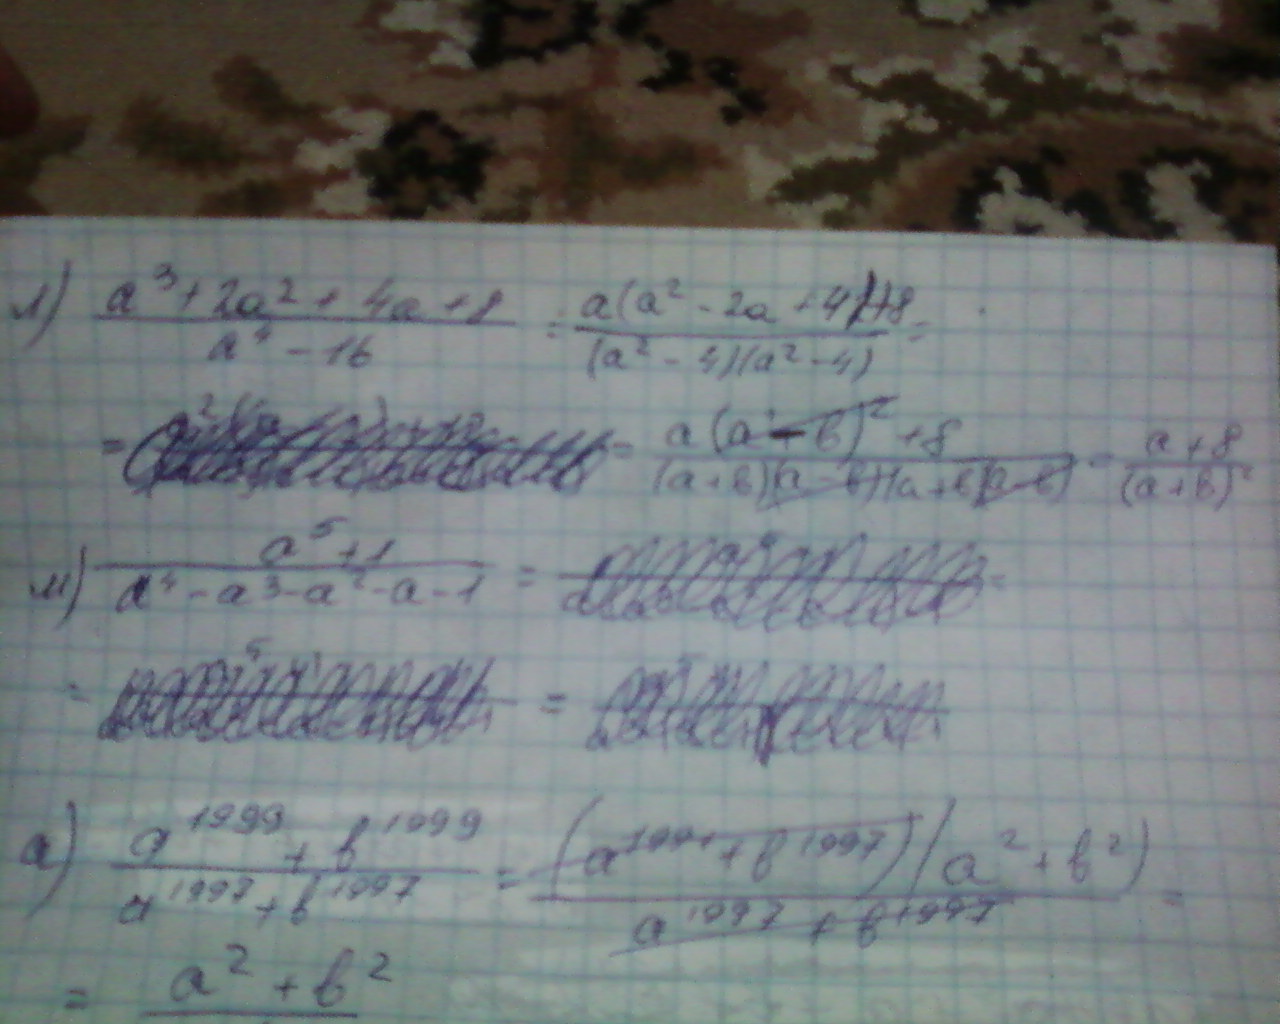 л) (a³ + 2a² + 4a + 8)/(a⁴ - 16) = (a(a² - 2a + 4)+8)/((a² - 4)(a² - 4)) =
= = (a(a - b)² + 8)/((a + b)(a - b)(a + b)(a - b)) = (a + 8)/(a + b)²
м) (a⁵ + 1)/(a⁴ - a³ - a² - a - 1) = =
= =
а) (a¹⁹⁹⁹ + b¹⁹⁹⁹)/(a¹⁹⁹⁷ + b¹⁹⁹⁷) = ((a¹⁹⁹⁷ + b¹⁹⁹⁷)(a² + b²))/(a¹⁹⁹⁷ + b¹⁹⁹⁷) =
= a² + b²